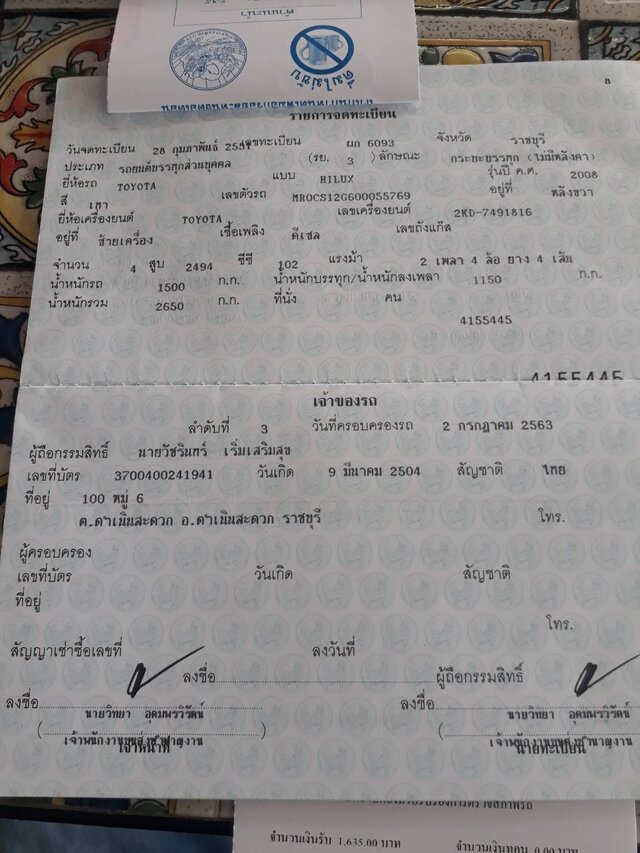 คำแนะนำ
ดื่มไม่ขับ
8
รายการจดทะเบียน
วันจดทะเบียน 28 กุมภาพันธ์ 2551 เลขทะเบียน ผก 6093 จังหวัด ราชบุรี
ประเภท รถยนต์บรรทุกส่วนบุคคล (รย. 3 ) ลักษณะ กระบะบรรทุก (ไม่มีหลังคา)
ยี่ห้อรถ TOYOTA แบบ HILUX รุ่นปี ค.ศ. 2008
สี เทา เลขตัวรถ MROCS12G600055769 อยู่ที่ หลังขวา
ยี่ห้อเครื่องยนต์ TOYOTA เลขเครื่องยนต์ 2KD-7491816
อยู่ที่ ซ้ายเครื่อง เชื้อเพลิง ดีเซล เลขถังแก๊ส
จำนวน 4 สูบ 2494 ซีซี 102 แรงม้า 2 เพลา 4 ล้อ ยาง 4 เส้น
น้ำหนักรถ 1500 ก.ก. น้ำหนักบรรทุก/น้ำหนักลงเพลา 1150 ก.ก.
น้ำหนักรวม 2650 ก.ก. ที่นั่ง คน
4155445
4155445
เจ้าของรถ
ลำดับที่ 3 วันที่ครอบครองรถ 2 กรกฎาคม 2563
ผู้ถือกรรมสิทธิ์ นายวัชรินทร์ เริ่มเสริมสุข
เลขที่บัตร 3700400241941 วันเกิด 9 มีนาคม 2504 สัญชาติ ไทย
ที่อยู่ 100 หมู่ 6
ต.ดำเนินสะดวก อ.ดำเนินสะดวก ราชบุรี โทร.
ผู้ครอบครอง
เลขที่บัตร วันเกิด สัญชาติ
ที่อยู่
โทร.
สัญญาเช่าซื้อเลขที่ ลงวันที่
ลงชื่อ ผู้ถือกรรมสิทธิ์
ลงชื่อ ลงชื่อ
( นายวิทยา อุดมพรวิรัตน์ ) ( นายวิทยา อุดมพรวิรัตน์ )
เจ้าพนักงานขนส่งชำนาญงาน เจ้าพนักงานขนส่งชำนาญงาน
เจ้าหน้าที่ นายทะเบียน
จำนวนเงินรับ 1,635.00 บาท จำนวนเงินทอน 0.00 บาท